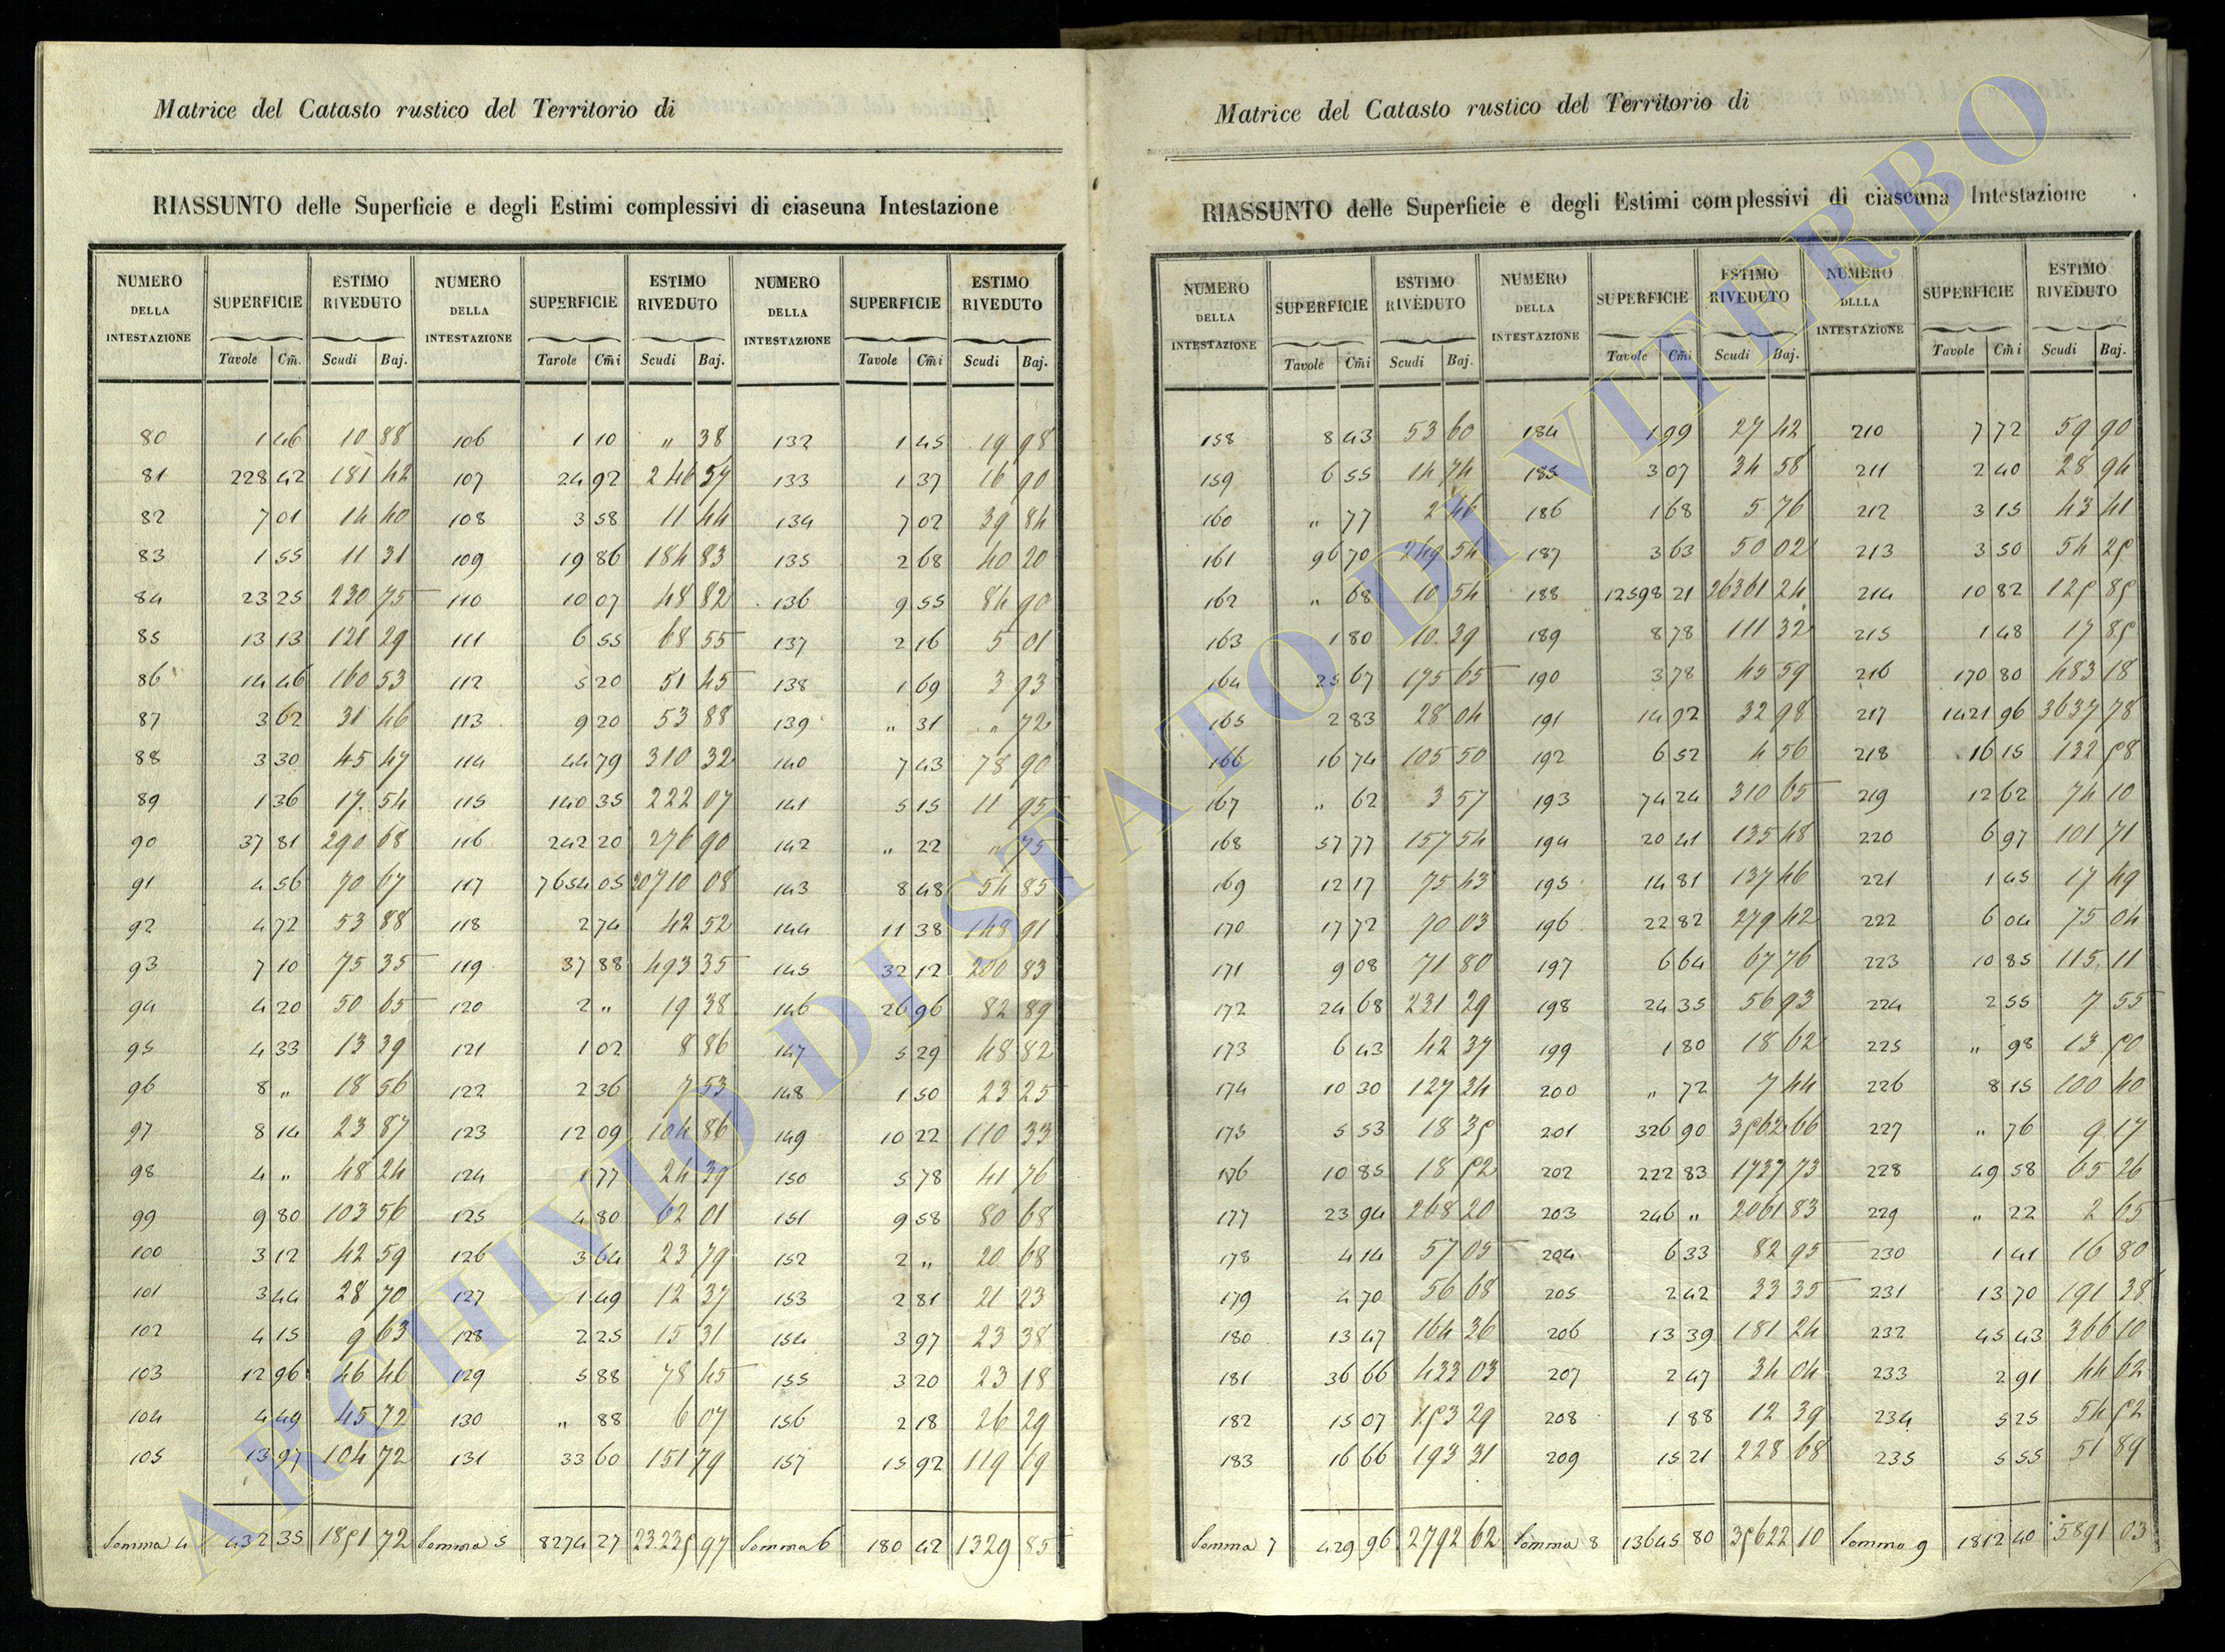 Matrice del Catasto rustico del Territorio di
RIASSUNTO delle Superficie e degli Estimi complessivi di ciascuna Intestazione
NUMERO DELLA INTESTAZIONE SUPERFICIE ESTIMO RIVEDUTO NUMERO DELLA INTESTAZIONE SUPERFICIE ESTIMO RIVEDUTO NUMERO DELLA INTESTAZIONE SUPERFICIE ESTIMO RIVEDUTO
Tavole Cm̃. Scudi Baj. Tavole Cm̃i Scudi Baj. Tavole Cm̃i Scudi Baj.
80 1 46 10 88 106 1 10 " 38 132 1 45 19 98
81 228 42 181 42 107 24 92 246 57 133 1 37 16 90
82 7 01 14 40 108 3 58 11 44 134 7 02 39 84
83 1 55 11 31 109 19 86 184 83 135 2 68 40 20
84 23 25 230 75 110 10 07 48 82 136 9 55 84 90
85 13 13 121 29 111 6 55 68 55 137 2 16 5 01
86 14 46 160 53 112 5 20 51 45 138 1 69 3 93
87 3 62 31 46 113 9 20 53 88 139 " 31 " 72
88 3 30 45 47 114 44 79 310 32 140 7 43 78 90
89 1 36 17 54 115 140 35 222 07 141 5 15 11 95
90 37 81 290 68 116 242 20 276 90 142 " 22 " 75
91 4 56 70 67 117 7654 05 20710 08 143 8 48 54 85
92 4 72 53 88 118 2 74 42 52 144 11 38 148 91
93 7 10 75 35 119 37 88 493 35 145 32 12 200 83
94 4 20 50 65 120 2 " 19 38 146 26 96 82 89
95 4 33 13 39 121 1 02 8 86 147 5 29 48 82
96 8 " 18 56 122 2 36 7 53 148 1 50 23 25
97 8 14 23 87 123 12 09 104 86 149 10 22 110 33
98 4 " 48 24 124 1 77 24 39 150 5 78 41 76
99 9 80 103 56 125 4 80 62 01 151 9 58 80 68
100 3 12 42 59 126 3 64 23 79 152 2 " 20 68
101 3 44 28 70 127 1 49 12 37 153 2 81 21 23
102 4 15 9 63 128 2 25 15 31 154 3 97 23 38
103 12 96 46 46 129 5 88 78 45 155 3 20 23 18
104 4 49 45 72 130 " 88 6 07 156 2 18 26 29
105 13 97 104 72 131 33 60 151 79 157 15 92 119 19
Somma 4 432 35 1851 72 Somma 5 8274 27 23235 97 Somma 6 180 42 1329 85
Matrice del Catasto rustico del Territorio di
RIASSUNTO delle Superficie e degli Estimi complessivi di ciascuna Intestazione
NUMERO DELLA INTESTAZIONE SUPERFICIE ESTIMO RIVEDUTO NUMERO DELLA INTESTAZIONE SUPERFICIE ESTIMO RIVEDUTO NUMERO DELLA INTESTAZIONE SUPERFICIE ESTIMO RIVEDUTO
Tavole Cm̃i Scudi Baj. Tavole Cm̃i Scudi Baj. Tavole Cm̃i Scudi Baj.
158 8 43 53 60 184 1 99 27 42 210 7 72 59 90
159 6 55 14 74 185 3 07 34 58 211 2 40 28 94
160 " 77 2 46 186 1 68 5 76 212 3 15 43 41
161 96 70 249 54 187 3 63 50 02 213 3 50 54 25
162 " 68 10 54 188 12598 21 26361 24 214 10 82 125 85
163 1 80 10 39 189 8 78 111 32 215 1 48 17 85
164 25 67 195 65 190 3 78 45 59 216 170 80 483 18
165 2 83 28 04 191 14 92 32 98 217 1421 96 3637 78
166 16 74 105 50 192 6 52 4 56 218 16 15 132 58
167 " 62 3 57 193 74 24 310 65 219 12 62 74 10
168 57 77 157 54 194 20 41 135 48 220 6 97 101 71
169 12 17 75 43 195 14 81 137 46 221 1 45 17 49
170 17 72 90 03 196 22 82 279 42 222 6 04 75 04
171 9 08 71 80 197 6 64 67 76 223 10 85 115 11
172 24 68 231 29 198 24 35 56 93 224 2 55 7 55
173 6 43 42 37 199 1 80 18 62 225 " 98 13 50
174 10 30 127 24 200 " 72 7 44 226 8 15 100 40
175 5 53 18 35 201 326 90 3562 66 227 " 76 9 17
176 10 85 18 52 202 222 83 1737 73 228 49 58 65 26
177 23 94 268 20 203 246 " 2061 83 229 " 22 2 65
178 4 14 57 05 204 6 33 82 95 230 1 41 16 80
179 4 70 56 68 205 2 42 33 35 231 13 70 191 38
180 13 47 164 36 206 13 39 181 24 232 45 43 366 10
181 36 66 433 03 207 2 47 34 04 233 2 91 44 62
182 15 07 153 29 208 1 88 12 39 234 5 25 54 52
183 16 66 193 31 209 15 21 228 68 235 5 55 51 89
Somma 7 429 96 2792 62 Somma 8 13645 80 35622 10 Somma 9 1812 40 5891 03
ARCHIVIO DI STATO DI VITERBO